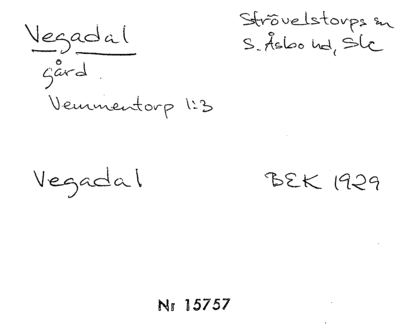 Vegadal
Strövelstorps sn
S. Åsbo hd, Slc
gård.
Vemmentorp 1:3
Vegadal
BEK 1929
Nr 15757